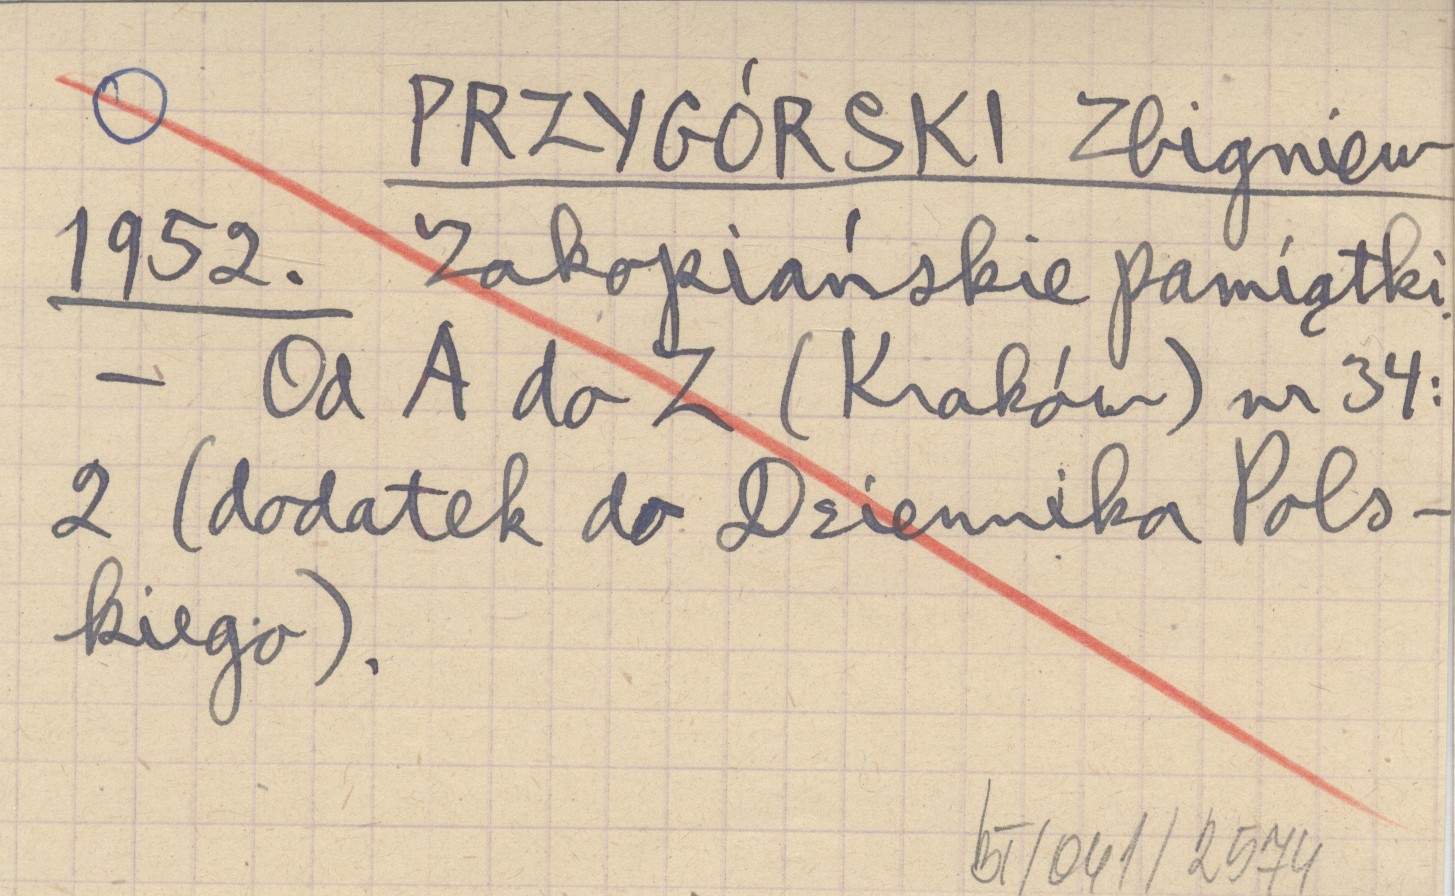 PRZYGÓRSKI Zbigniew
1952. Zakopiańskie pamiątki.
— Od A do Z (Kraków) nr 34:
2 (dodatek do Dziennika Pols-
kiego).
bT/041/2574